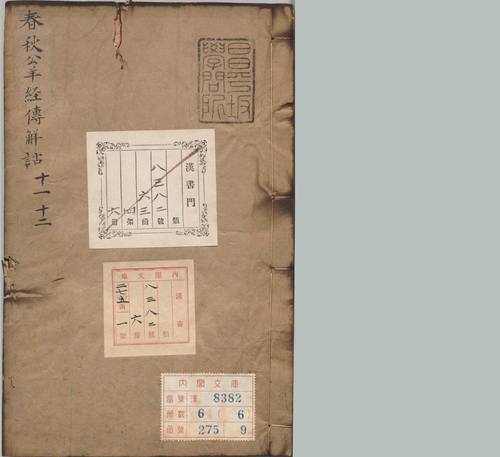 春秋公羊經傳解詁 十一十二
昌平坂
學問所
漢書門
類
八三八二
號
六三
函
四
架
六
冊
內閣文庫
漢書
類
八三八二
號
六
冊
二七五
函
一
架
內閣文庫
番號 漢 8382
冊數 6 ( 6)
函號 275 9